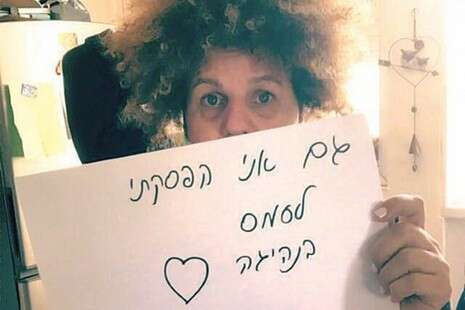 גם אני הפסקתי
לסמס
בנהיגה